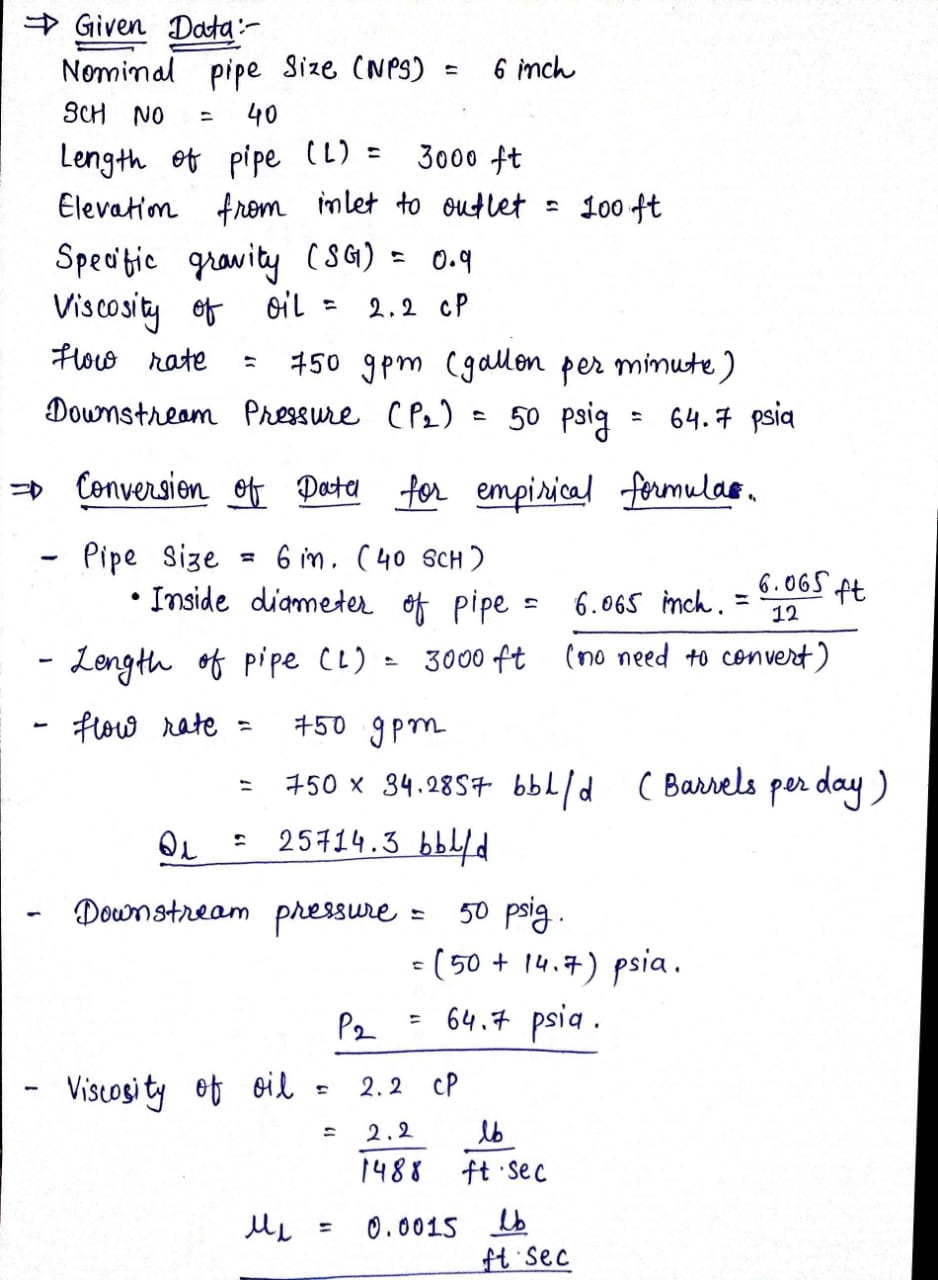 ⇒ Given Data:-
Nominal pipe Size (NPS) = 6 inch
SCH NO = 40
Length of pipe (L) = 3000 ft
Elevation from inlet to outlet = 100 ft
Specific gravity (SG) = 0.9
Viscosity of oil = 2.2 cP
Flow rate = 750 gpm (gallon per minute)
Downstream Pressure (P₂) = 50 psig = 64.7 psia
⇒ Conversion of Data for empirical formulas.
- Pipe Size = 6 in. (40 SCH)
• Inside diameter of pipe = 6.065 inch. = 6.065/12 ft
- Length of pipe (L) = 3000 ft (no need to convert)
- flow rate = 750 gpm
= 750 × 34.2857 bbl/d (Barrels per day)
Q_L = 25714.3 bbl/d
- Downstream pressure = 50 psig.
= (50 + 14.7) psia.
P₂ = 64.7 psia.
- Viscosity of oil = 2.2 cP
= 2.2/1488 lb/ft·sec
μ_L = 0.0015 lb/ft·sec